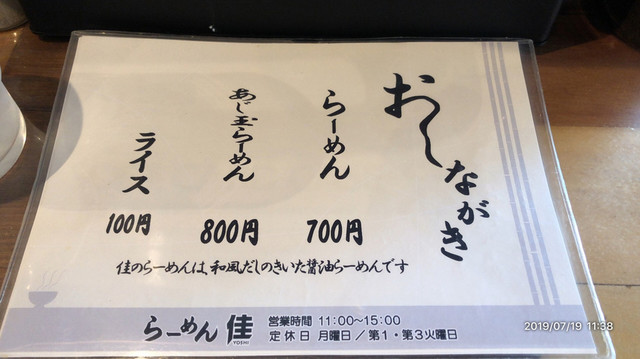 おしながき
らーめん
700円
あじ玉らーめん
800円
ライス
100円
佳のらーめんは、和風だしのきいた醤油らーめんです
らーめん 佳
YOSHI
営業時間 11:00~15:00
定休日 月曜日/第1・第3火曜日
2019/07/19 11:38